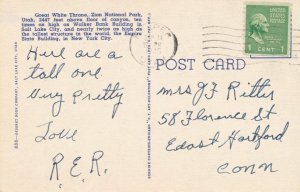 Great White Throne, Zion National Park,
Utah, 2447 feet above floor of canyon, ten
times as high as Walker Bank Building in
Salt Lake City, and nearly twice as high as
the tallest structure in the world, the Empire
State Building, in New York City.
Here are a
tall one
Very Pretty
Love
R.E.R.
POST CARD
1 CENT 1
Mrs J F Ritter
58 Florence St
East Hartford
Conn